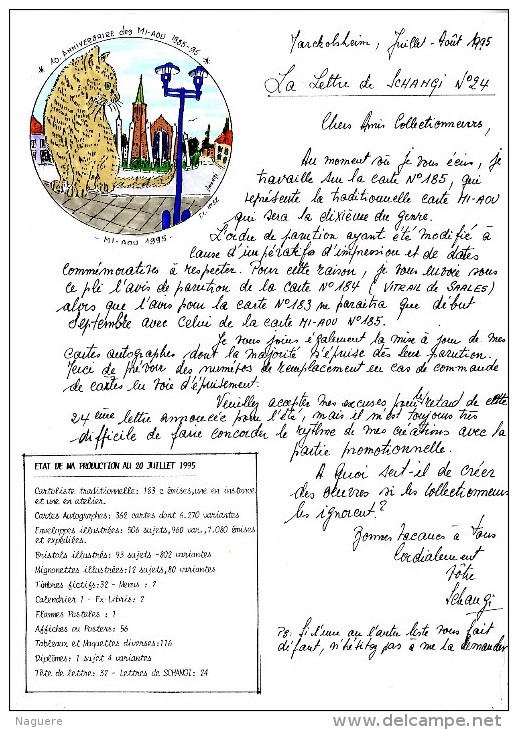 10 ANNIVERSAIRE des MI-AOU 1985-95
- MI-AOU 1995 -
Marckolsheim, Juillet - Août 1995
La Lettre de SCHANGI N°24
Chers Amis Collectionneurs,
Au moment où je vous écris, je
travaille sur la carte N°185, qui
représente la traditionnelle carte MI-AOU
qui sera la dixième du genre.
L'ordre de parution ayant été modifié à
cause d'impératifs d'impression et de dates
commémoratives à respecter. Pour cette raison, je vous envoie sous
ce pli l'avis de parution de la carte N°184 (VITRAIL de SAALES)
alors que l'avis pour la carte N°183 ne paraitra que début
Septembre avec celui de la carte MI-AOU N°185.
Je vous joins également la mise à jour de mes
cartes autographes dont la majorité s'épuise dès leur parution.
Merci de prévoir des numéros de remplacement en cas de commande
de cartes en voie d'épuisement.
Veuillez accepter mes excuses pour le retard de cette
24 ème lettre annoncée pour l'été, mais il m'est toujours très
difficile de faire concorder le rythme de mes créations avec la
partie promotionnelle.
A quoi sert-il de créer
des œuvres si les collectionneurs
les ignorent?
Bonnes vacances à tous
Cordialement
Vôtre
Schangi
PS: Si l'une ou l'autre liste vous fait
défaut, n'hésitez pas à me la demander
ETAT DE MA PRODUCTION AU 20 JUILLET 1995
Cartoliste traditionnelle: 183 c émises,une en instance
et une en atelier.
Cartes Autographes: 362 cartes dont 6.270 variantes
Enveloppes illustrées: 506 sujets,960 var.,7.080 émises
et expédiées.
Bristols illustrés: 93 sujets -802 variantes
Mignonettes illustrées:12 sujets,80 variantes
Timbres fictifs:32 - Menus : 7
Calendrier 1 - Ex-Libris: 2
Flammes Postales : 1
Affiches ou Posters: 56
Tableaux et Maquettes diverses:116
Diplômes: 1 sujet 4 variantes
Tête de lettre: 37 - Lettres de SCHANGI: 24
Naguere
www.delcampe.net